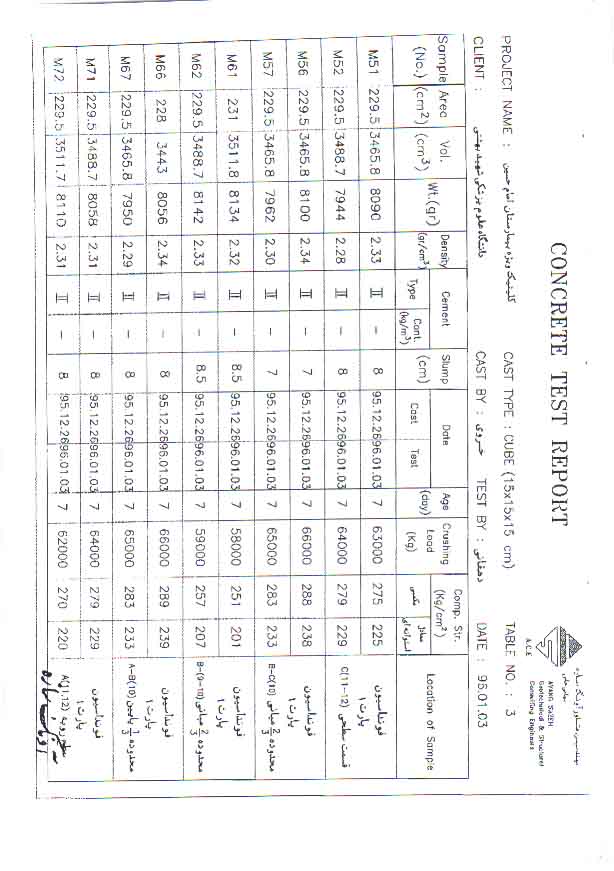 CONCRETE TEST REPORT
مهندسین مشاور آونگ سازه
A.C.E
AVANG SAZEH
Geotechnical & Structural
Consulting Engineers
PROJECT NAME : کلینیک ویژه بیمارستان امام حسین CAST TYPE : CUBE (15x15x15 cm) TABLE NO. : 3
CLIENT : دانشگاه علوم پزشکی شهید بهشتی CAST BY : TEST BY : دهقانی DATE : 96.01.03
Sample (No.) Area (cm2) Vol. (cm3) Wt.(gr) Density (gr/cm3) Cement Type Cont. (kg/m3) Slump (cm) Date Cast Test Age (day) Crushing Load (Kg) Comp. Str. (Kg/cm2) مکعبی معادل استوانه‌ای Location of Sample
M51 229.5 3465.8 8090 2.33 II – 8 95.12.26 96.01.03 7 63000 275 225 فونداسیون پارت ۱
M52 229.5 3488.7 7944 2.28 II – 8 95.12.26 96.01.03 7 64000 279 229 قسمت سطحی C(11-12)
M56 229.5 3465.8 8100 2.34 II – 7 95.12.26 96.01.03 7 66000 288 238 فونداسیون پارت ۱
M57 229.5 3465.8 7962 2.30 II – 7 95.12.26 96.01.03 7 65000 283 233 محدوده 2/3 میانی B-C(10)
M61 231 3511.8 8134 2.32 II – 8.5 95.12.26 96.01.03 7 58000 251 201 فونداسیون پارت ۱
M62 229.5 3488.7 8142 2.33 II – 8.5 95.12.26 96.01.03 7 59000 257 207 محدوده 2/3 میانی B-(9-10)
M66 228 3443 8056 2.34 II – 8 95.12.26 96.01.03 7 66000 289 239 فونداسیون پارت ۱
M67 229.5 3465.8 7950 2.29 II – 8 95.12.26 96.01.03 7 65000 283 233 محدوده 1/3 پایین A-B(10)
M71 229.5 3488.7 8058 2.31 II – 8 95.12.26 96.01.03 7 64000 279 229 فونداسیون پارت ۱
M72 229.5 3511.7 8110 2.31 II – 8 95.12.26 96.01.03 7 62000 270 220 سطح رویه A(11,12)